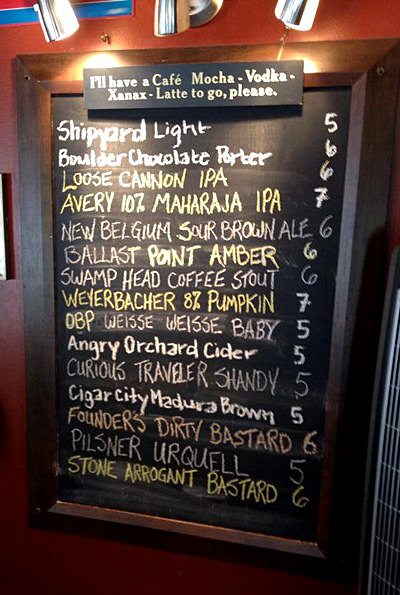 I'll have a Café Mocha - Vodka -
Xanax - Latte to go, please.
Shipyard Light 5
Boulder Chocolate Porter 6
LOOSE CANNON IPA 6
AVERY 10% MAHARAJA IPA 7
NEW BELGIUM SOUR BROWN ALE 6
BALLAST POINT AMBER 6
SWAMP HEAD COFFEE STOUT 6
WEYERBACHER 8% PUMPKIN 7
OBP WEISSE WEISSE BABY 5
Angry Orchard Cider 5
CURIOUS TRAVELER SHANDY 5
Cigar City Madura Brown 5
FOUNDER'S DIRTY BASTARD 6
PILSNER URQUELL 5
STONE ARROGANT BASTARD 6